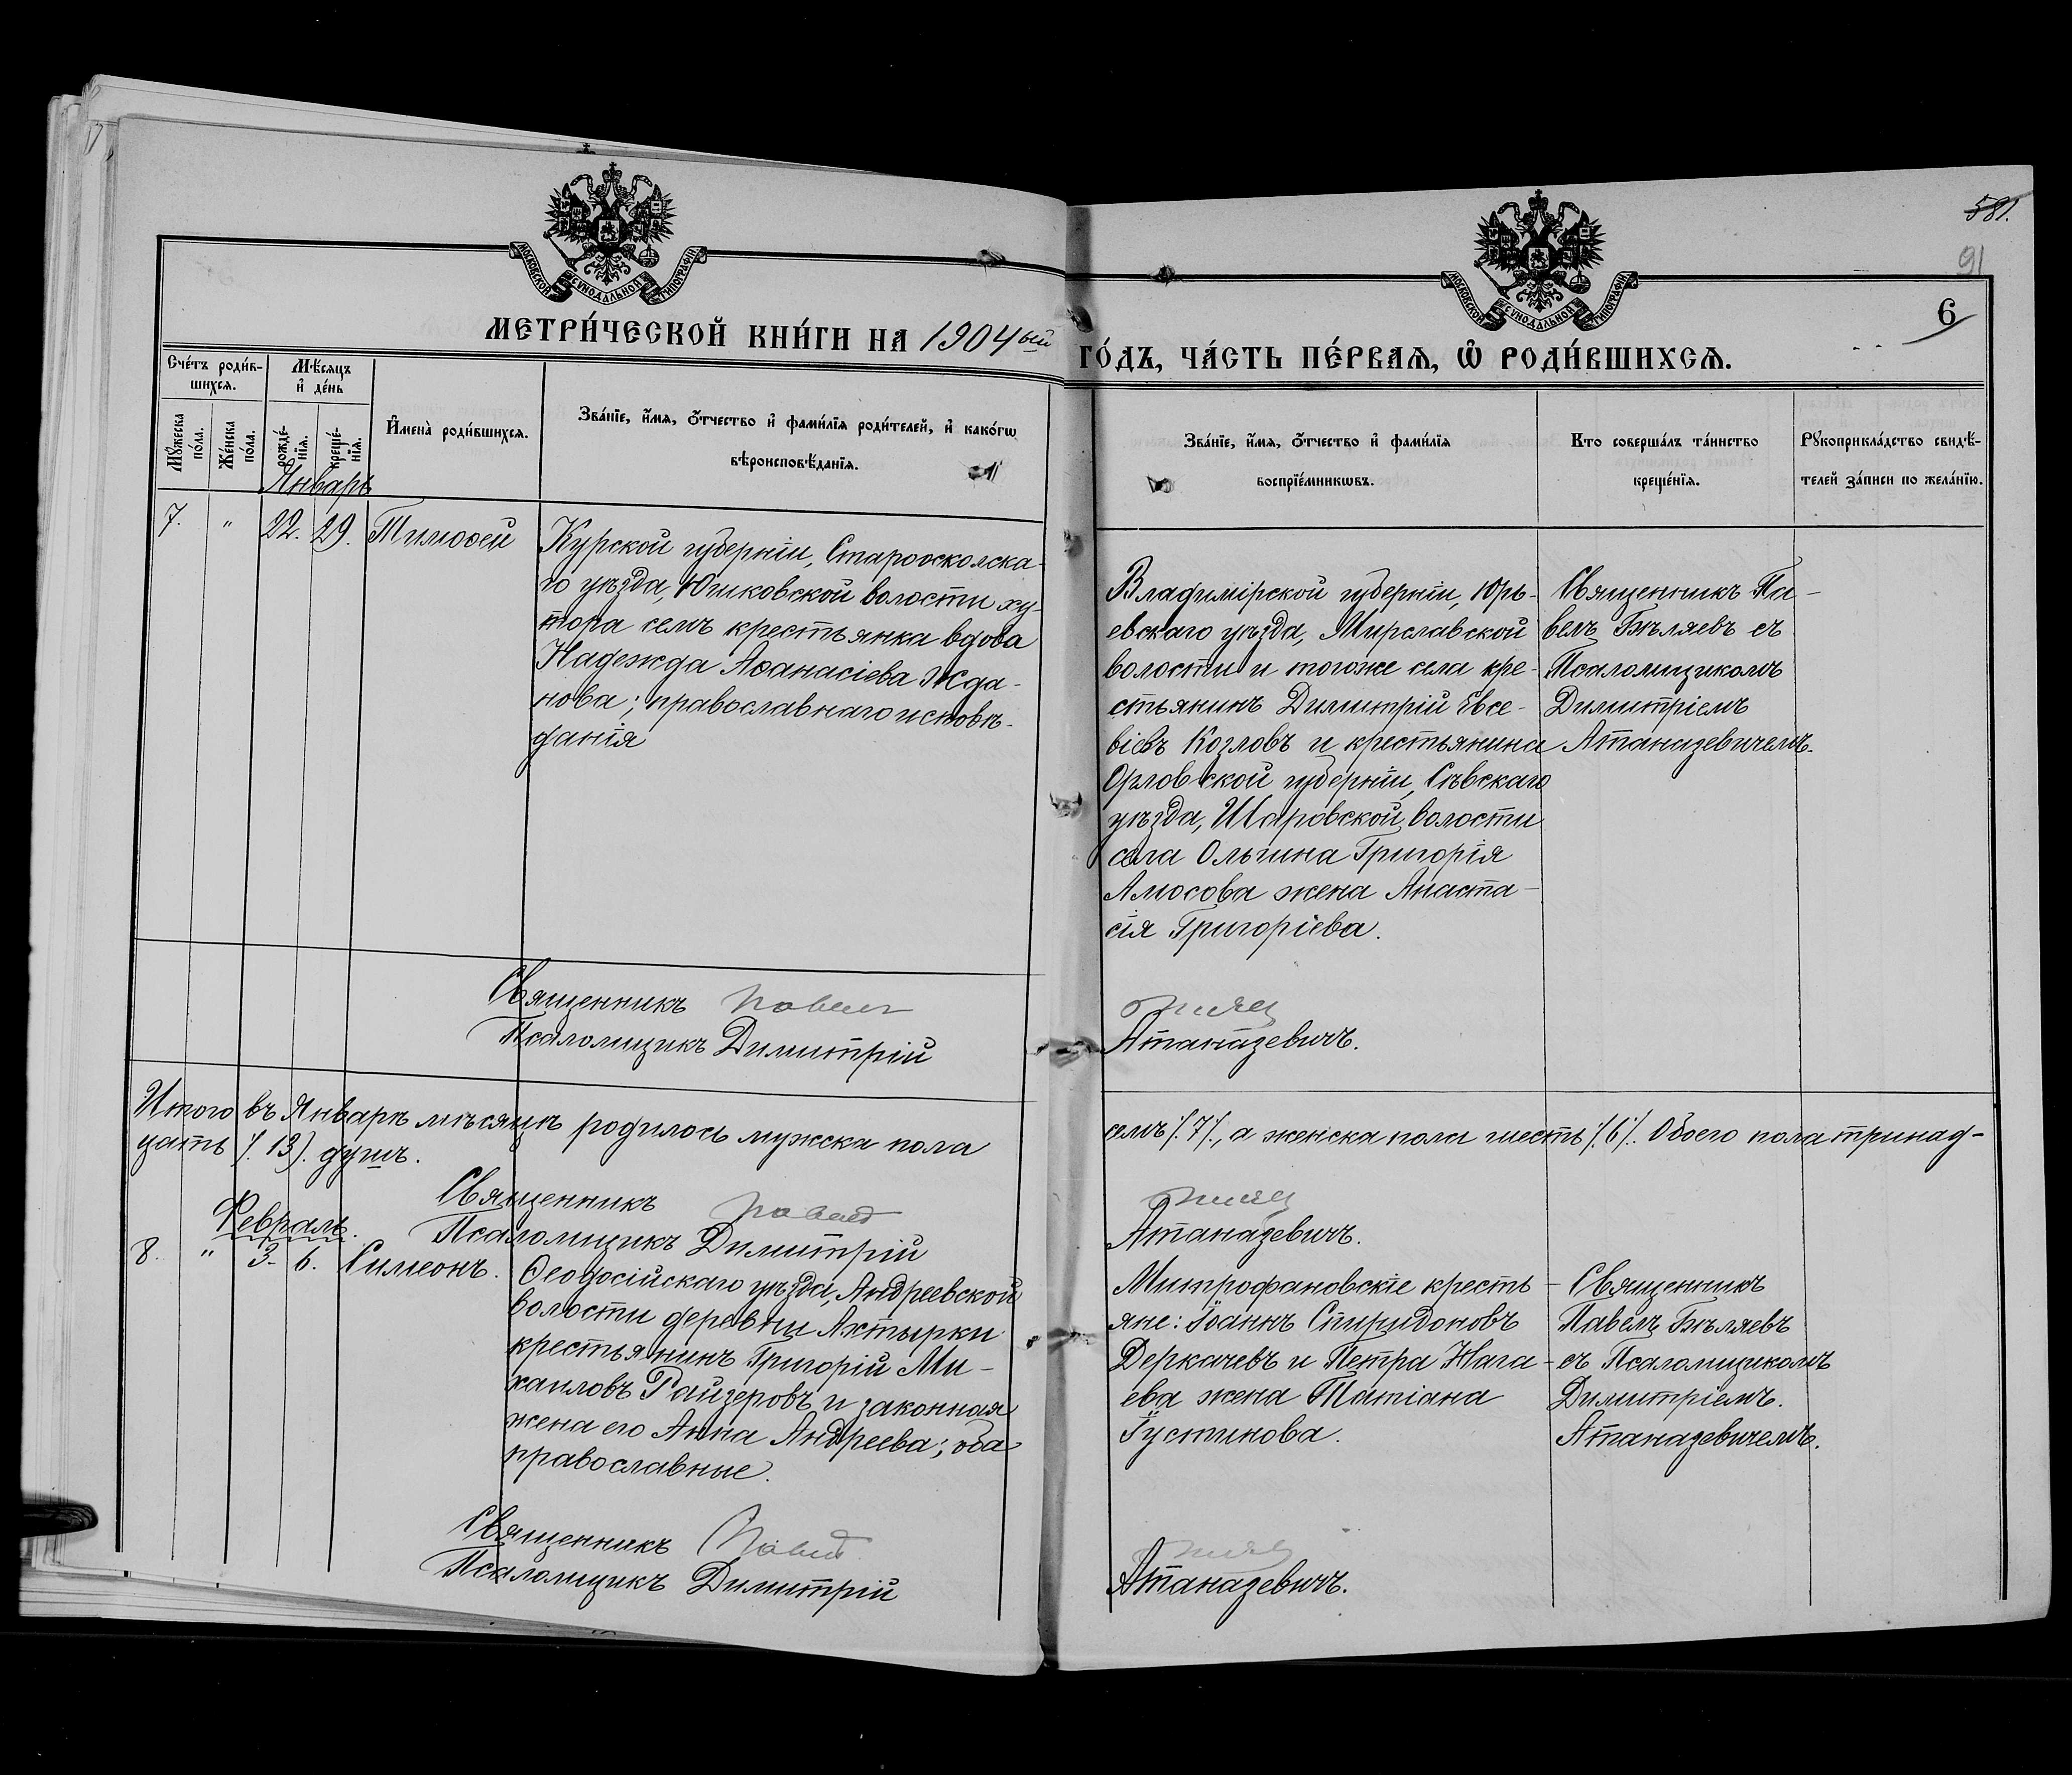 МОСКОВСКОЙ СѴНОДАЛЬНОЙ ТИПОГРАФІИ.
МОСКОВСКОЙ СѴНОДАЛЬНОЙ ТИПОГРАФІИ.
581.
91
6
МЕТРИ́ЧЕСКОЙ КНИ́ГИ НА 1904ый
ГО́ДЪ, ЧА́СТЬ ПЕ́РВАѦ, Ѽ РОДИ́ВШИХСѦ.
Сче́тъ роди́в-
шихсѧ.
Мꙋ́жеска по́ла.
Же́нска по́ла.
Мѣ́сѧцъ
и҆ де́нь
рожде́-
нїѧ.
креще́-
нїѧ.
И҆мена̀ роди́вшихсѧ.
Зва́нїе, и҆́мѧ, ѻ҆́тчество и҆ фами́лїѧ роди́телей, и҆ како́гѡ
вѣроисповѣ́данїѧ.
Зва́нїе, и҆́мѧ, ѻ҆́тчество и҆ фами́лїѧ
воспрїе́мникѡвъ.
Кто соверша́лъ та́инство
креще́нїѧ.
Рꙋкоприкла́дство свидѣ́-
телей за́писи по жела́нїю.
Январь
7. " 22. 29. Тимоѳей
Курской губерніи, Старооскольска-
го уѣзда, Юшковской волости ху-
тора семъ крестьянка вдова
Надежда Аѳанасіева Жда-
нова; православнаго исповѣ-
данія
Владимірской губерніи, Юрь-
евскаго уѣзда, Мирславской
волости и тогоже села кре-
стьянинъ Димитрій Евсе-
віевъ Козловъ и крестьянина
Орловской губерніи, Сѣвскаго
уѣзда, Шаровской волости
села Ольгина Григорія
Амосова жена Анаста-
сія Григоріева.
Священникъ Па-
велъ Бѣляевъ съ
Псаломщикомъ
Димитріемъ
Атаназевичемъ.
Священникъ Павелъ
Псаломщикъ Димитрій
Атаназевичъ.
Итого въ Январѣ мѣсяцѣ родилось мужска пола
семъ /. 7 /., а женска пола шесть /. 6 /. Обоего пола тринад-
цать /. 13 /. душъ.
Священникъ Павелъ
Псаломщикъ Димитрій
Атаназевичъ.
Февраль.
8. " 3. 6. Симеонъ.
Ѳеодосійскаго уѣзда, Андреевской
волости деревни Ахтырки
крестьянинъ Григорій Ми-
хаиловъ Райзеровъ и законная
жена его Анна Андреева; оба
православные.
Митрофановскіе кресть-
яне: Іоаннъ Спиридоновъ
Деркачевъ и Петра Нага-
ева жена Татіана
Іустинова.
Священникъ
Павелъ Бѣляевъ
съ Псаломщикомъ
Димитріемъ.
Атаназевичемъ.
Священникъ Павелъ
Псаломщикъ Димитрій
Атаназевичъ.